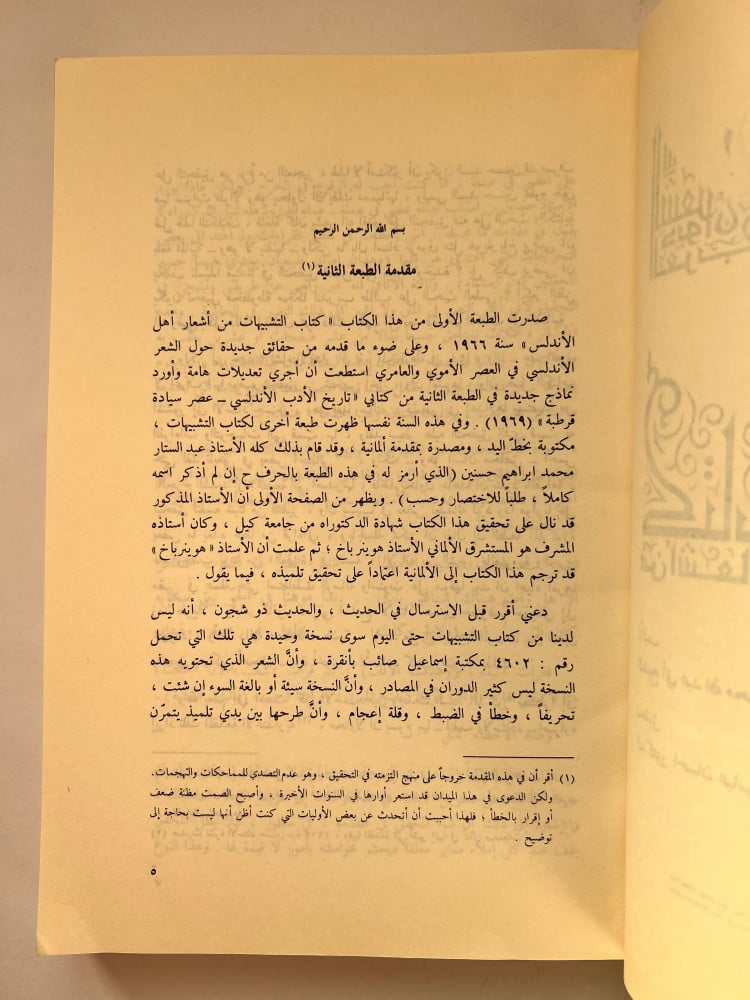 بسم الله الرحمن الرحيم
مقدمة الطبعة الثانية (١)
صدرت الطبعة الأولى من هذا الكتاب « كتاب التشبيهات من أشعار أهل
الأندلس » سنة ١٩٦٦ ، وعلى ضوء ما قدمه من حقائق جديدة حول الشعر
الأندلسي في العصر الأموي والعامري استطعت أن أجري تعديلات هامة وأورد
نماذج جديدة في الطبعة الثانية من كتابي « تاريخ الأدب الأندلسي ــ عصر سيادة
قرطبة » (١٩٦٩) . وفي هذه السنة نفسها ظهرت طبعة أخرى لكتاب التشبيهات ،
مكتوبة بخطّ اليد ، ومصدرة بمقدمة ألمانية ، وقد قام بذلك كله الأستاذ عبد الستار
محمد ابراهيم حسنين (الذي أرمز له في هذه الطبعة بالحرف ح إن لم أذكر اسمه
كاملاً ، طلباً للاختصار وحسب) . ويظهر من الصفحة الأولى أن الأستاذ المذكور
قد نال على تحقيق هذا الكتاب شهادة الدكتوراه من جامعة كيل ، وكان أستاذه
المشرف هو المستشرق الألماني الأستاذ هوينرباخ ؛ ثم علمت أن الأستاذ « هوينرباخ »
قد ترجم هذا الكتاب إلى الألمانية اعتماداً على تحقيق تلميذه ، فيما يقول .
دعني أقرر قبل الاسترسال في الحديث ، والحديث ذو شجون ، أنه ليس
لدينا من كتاب التشبيهات حتى اليوم سوى نسخة وحيدة هي تلك التي تحمل
رقم : ٤٦٠٢ بمكتبة إسماعيل صائب بأنقرة ، وأنَّ الشعر الذي تحتويه هذه
النسخة ليس كثير الدوران في المصادر ، وأنَّ النسخة سيئة أو بالغة السوء إن شئت ،
تحريفاً ، وخطأ في الضبط ، وقلة إعجام ، وأنَّ طرحها بين يدي تلميذ يتمرّن
(١) أقر أن في هذه المقدمة خروجاً على منهج التزمته في التحقيق ، وهو عدم التصدي للمماحكات والتهجمات.
ولكن الدعوى في هذا الميدان قد استعر أوارها في السنوات الأخيرة ، وأصبح الصمت مظنة ضعف
أو إقرار بالخطأ ؛ فلهذا أحببت أن أتحدث عن بعض الأوليات التي كنت أظن أنها ليست بحاجة إلى
توضيح .
٥